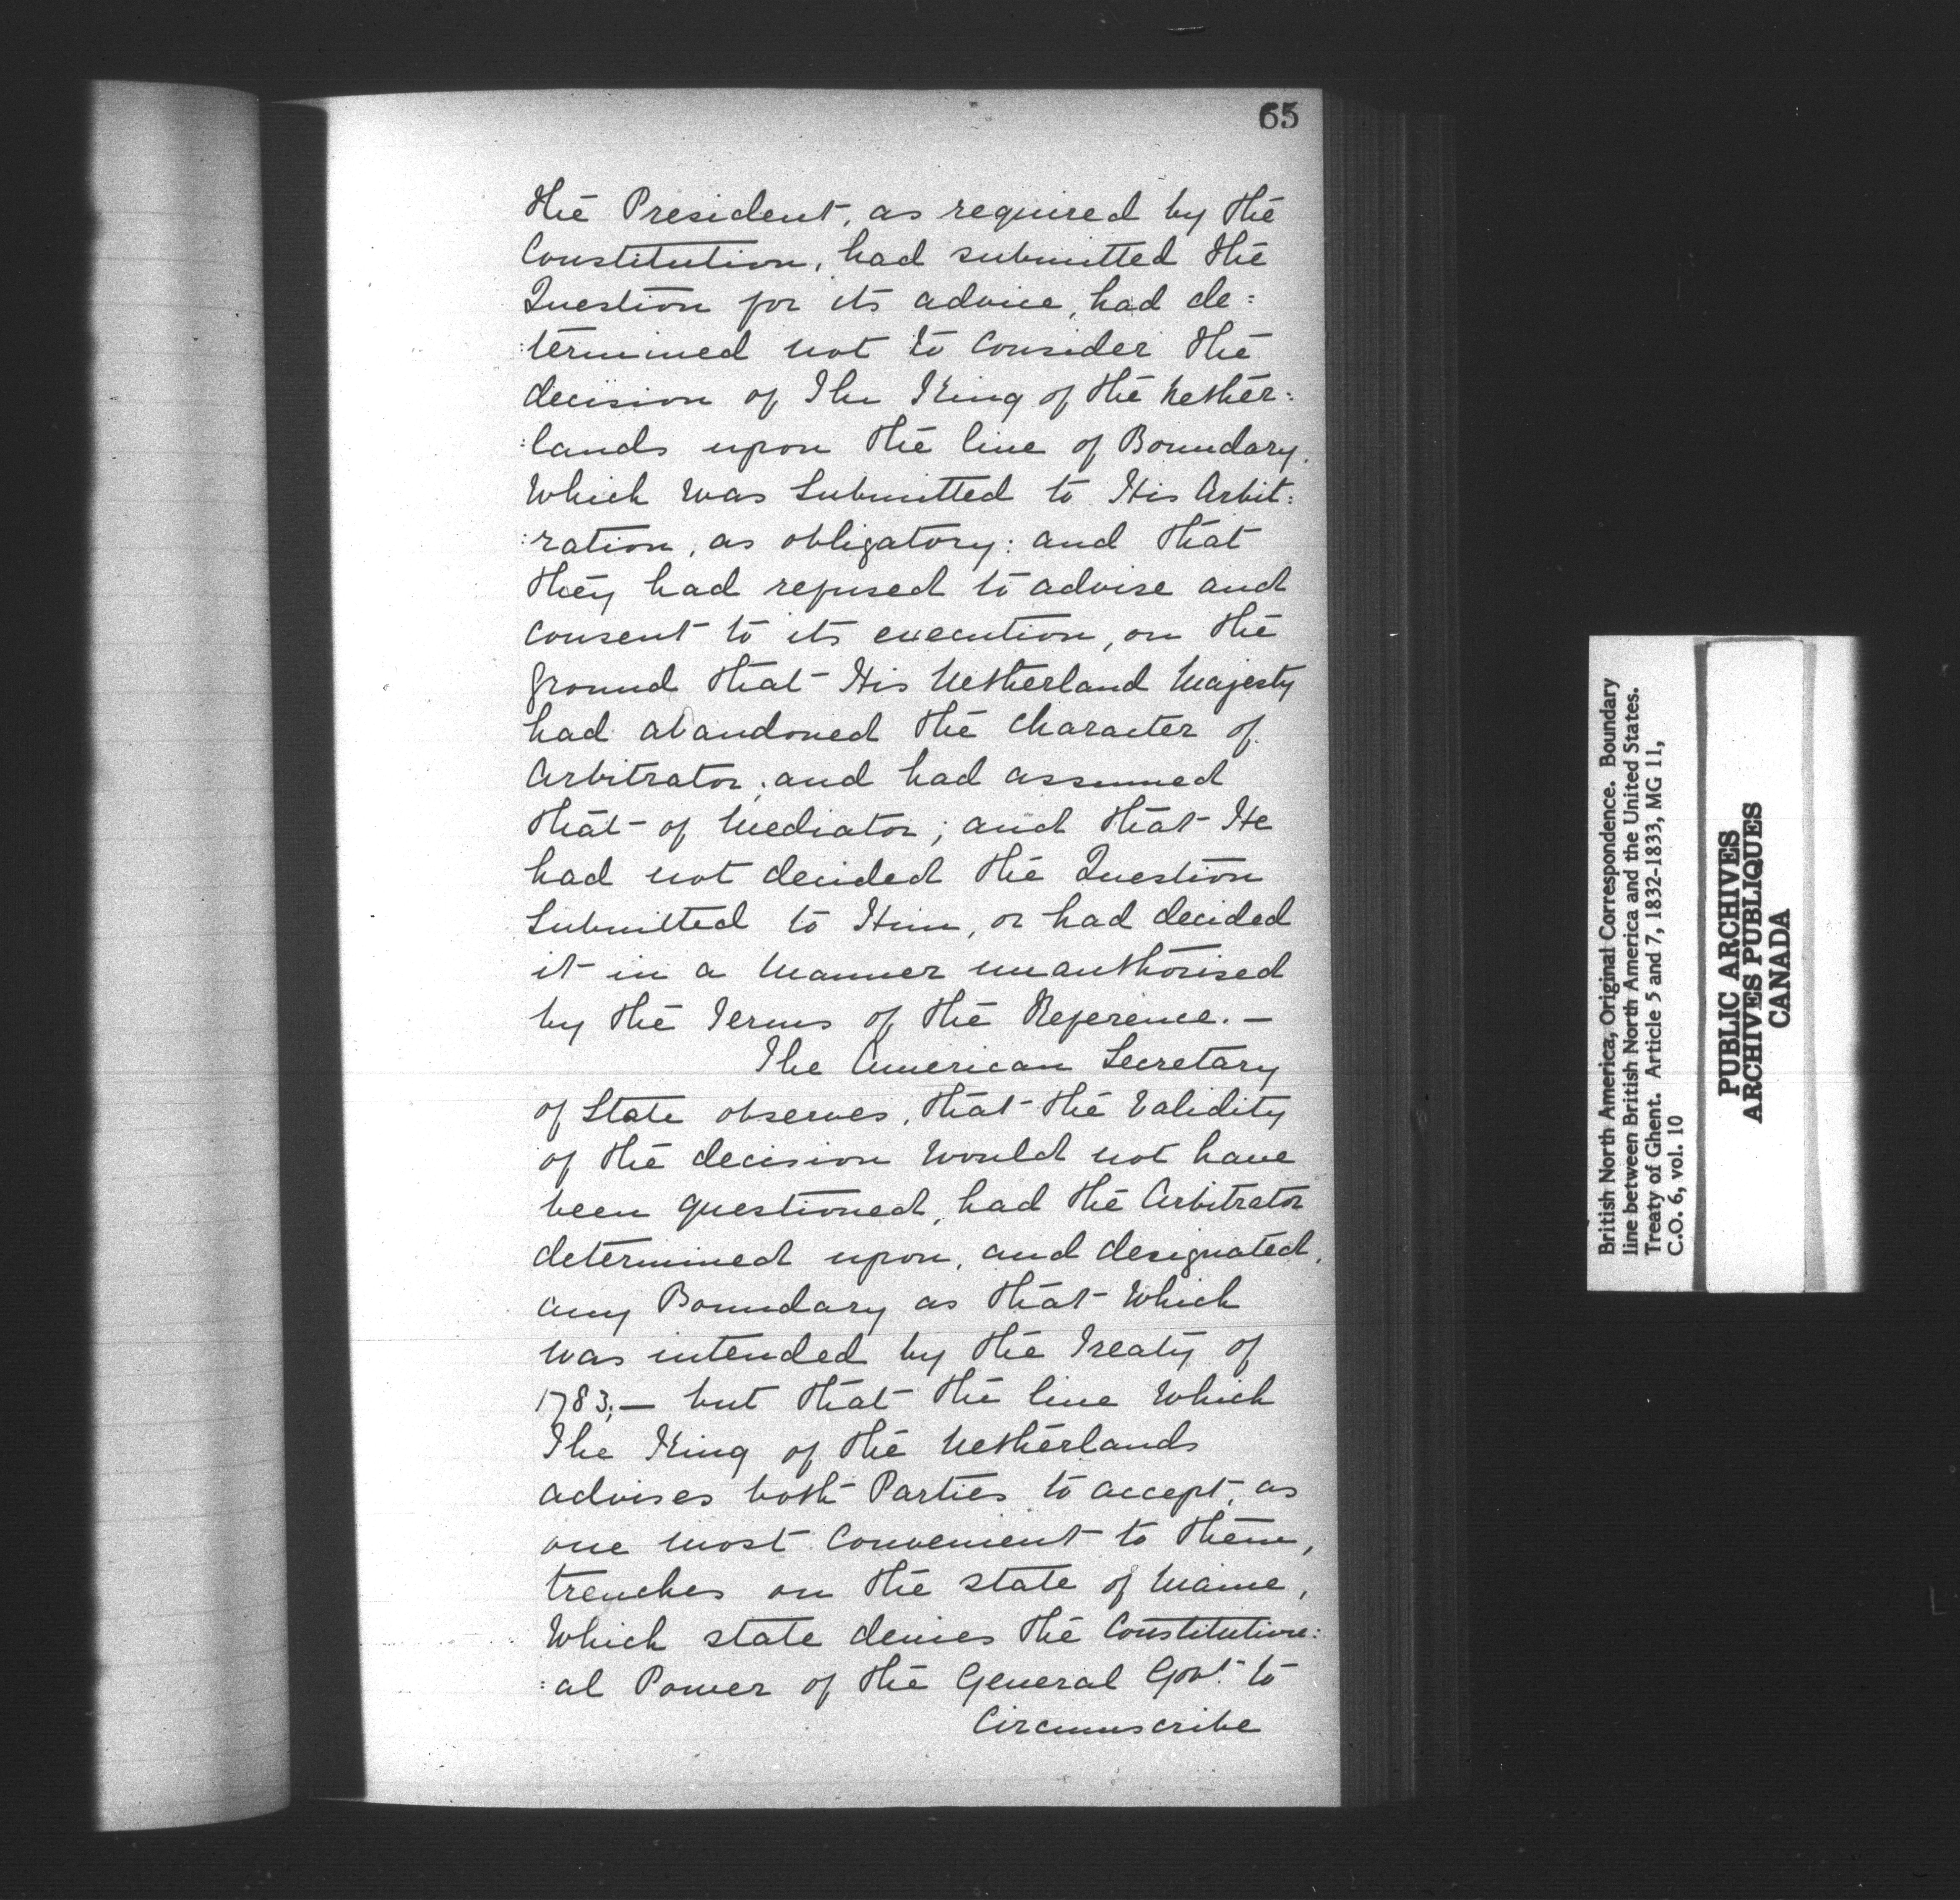 65
the President, as required by the
Constitution, had submitted the
Question for its advice, had de=
:termined not to Consider the
decision of The King of the Nether=
:lands upon the line of Boundary,
Which was Submitted to His Arbit=
:ration, as obligatory: and that
they had refused to advise and
consent to its execution, on the
ground that His Netherland Majesty
had abandoned the Character of
Arbitrator, and had assumed
that of Mediator; and that He
had not decided the Question
Submitted to Him, or had decided
it in a Manner unauthorised
by the Terms of the Reference. —
The American Secretary
of State observes, that the Validity
of the decision Would not have
been questioned, had the Arbitrator
determined upon, and designated,
any Boundary as that Which
was intended by the Treaty of
1783; — but that the line Which
The King of the Netherlands
advises both Parties to accept, as
one most Convenient to them,
trenches on the state of Maine,
Which state denies the Constitution:
:al Power of the General Govt. to
Circumscribe
British North America, Original Correspondence. Boundary
line between British North America and the United States.
Treaty of Ghent. Article 5 and 7, 1832-1833, MG 11,
C.O. 6, vol. 10
PUBLIC ARCHIVES
ARCHIVES PUBLIQUES
CANADA